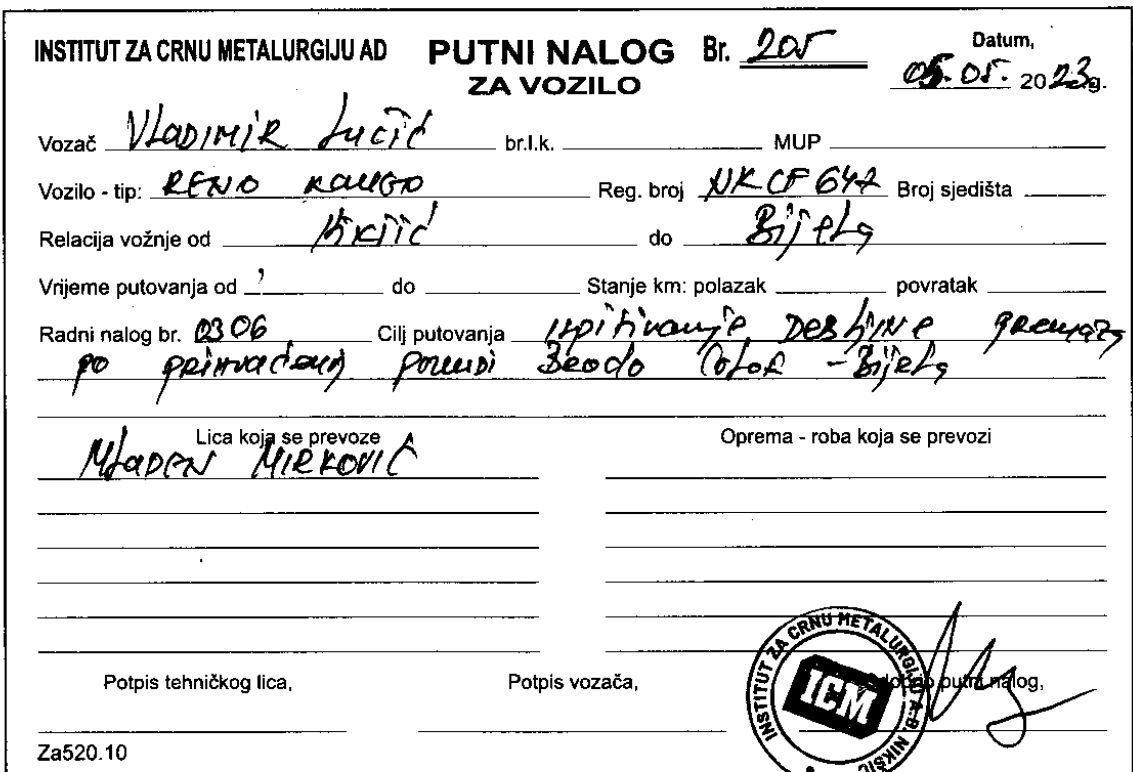 INSTITUT ZA CRNU METALURGIJU AD PUTNI NALOG Br. 205 Datum,
ZA VOZILO 05.05. 2023.g.
Vozač Vladimir Lucić br.l.k. MUP
Vozilo - tip: RENO KANGO Reg. broj NK CF 647 Broj sjedišta
Relacija vožnje od Nikšić do Bijela
Vrijeme putovanja od do Stanje km: polazak povratak
Radni nalog br. 0306 Cilj putovanja ispitivanje DEBLJINE premaza
po prihvaćenoj ponudi
Lica koja se prevoze Oprema - roba koja se prevozi
Mladen MIRKOVIĆ
Potpis tehničkog lica, Potpis vozača, putni nalog,
INSTITUT ZA CRNU METALURGIJU A.D. NIKŠIĆ
ICM
Za520.10